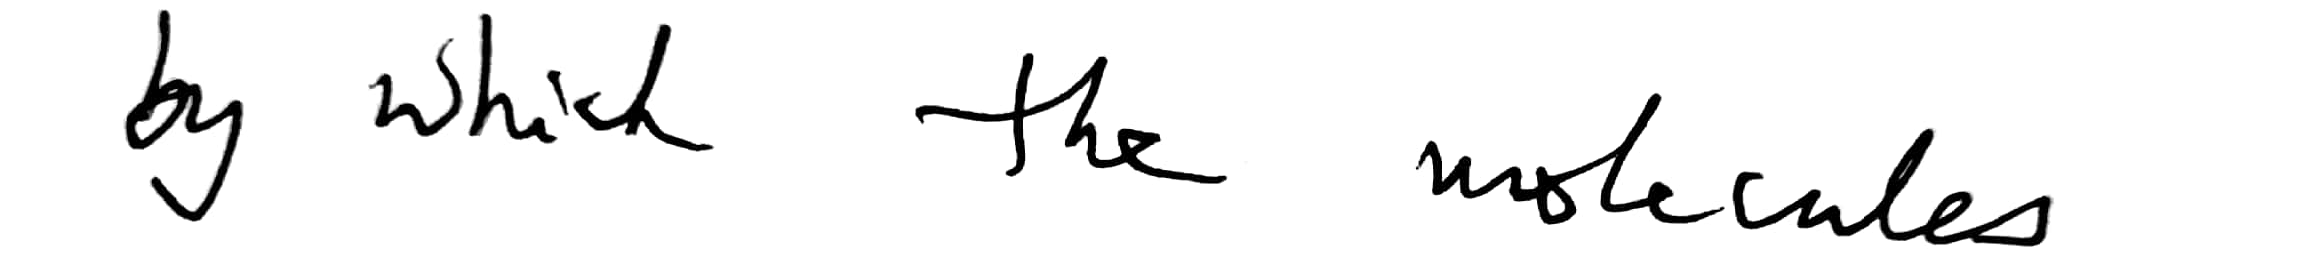 by which the molecules